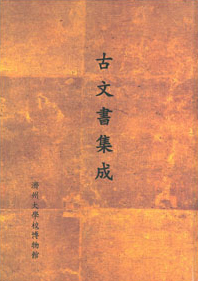 古文書集成
濟州大學校博物館